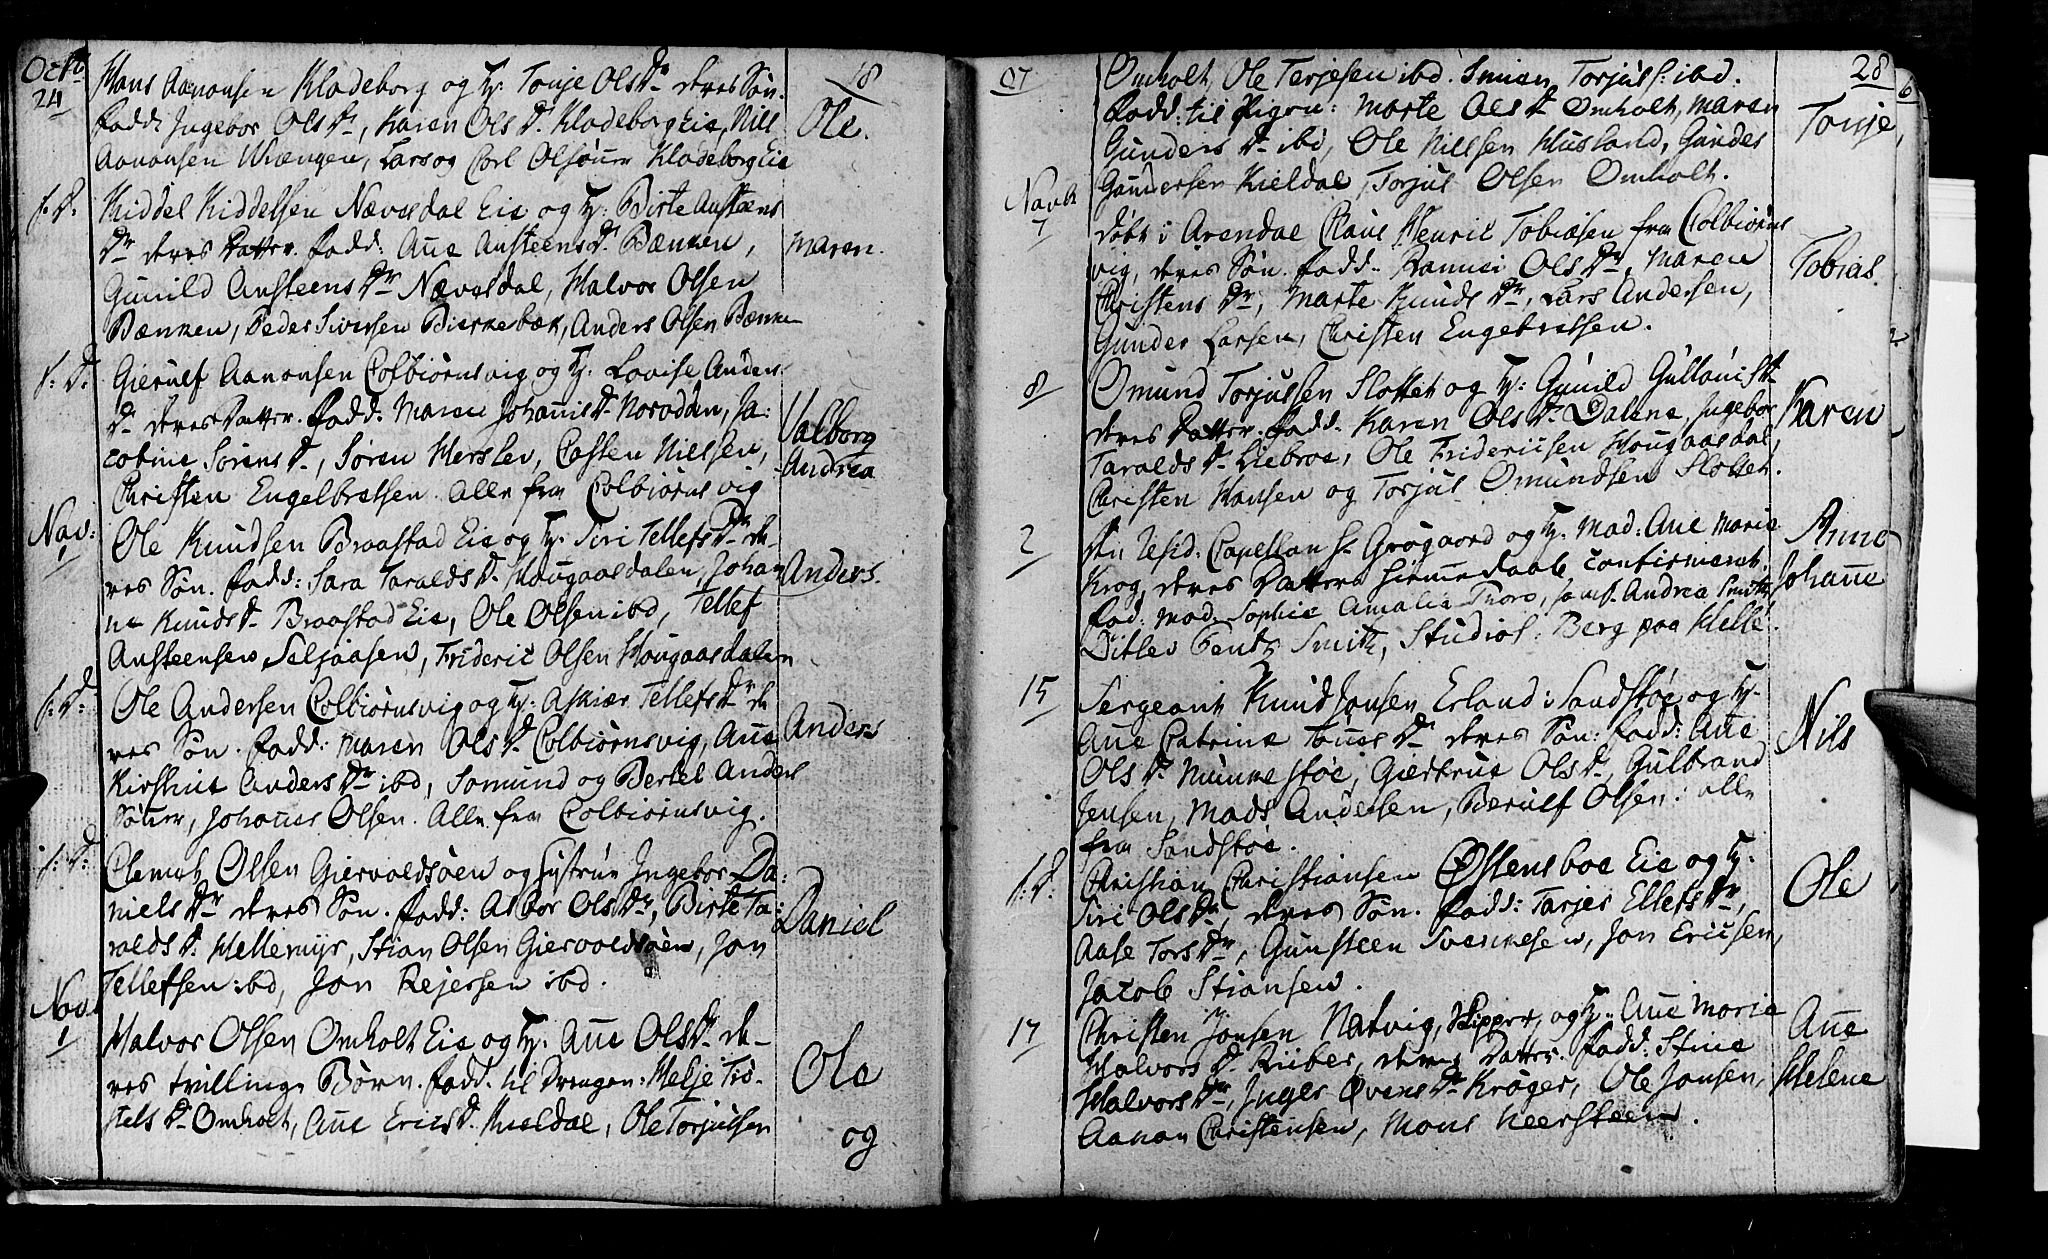 Octb
24
18
Hans Aanonsen Kladeborg og H: Tonje Ols Dr deres Søn.
fadd: Ingebor Ols Dr, Karen Ols D. Kladeborg Eie, Nill
Ole.
Aanonsen Vrængen, Lars og Carl Olsønner Kladeborg Eie
s. D.
Kiddel Kiddelsen Næversdal Eie og H: Birte Ansteens
Dr deres Datter. fadd: Ane Ansteens D. Bænken,
Maren.
Gunild Ansteens Dr Næversdal, Halvor Olsen
Bænken, Peder Siversen Birkebæk, Anders Olsen Bænken
s: D.
Gierulf Aanonsen Colbiørnsvig og H: Lovise Anders
D. deres Datter. fadd: Maren Johannis D. Norodden, Ja:
Valborg
cobine Sørens D., Søren Herslev, Casten Nielsen,
Andrea
Christen Engelbretsen. Alle fra Colbiørnsvig
Nov:
1
Ole Knudsen Braastad Eie og H: Siri Tellefs Dr de-
res Søn. fadd: Sara Taralds D. Hougaasdalen, Johan
Anders.
ne Knuds D. Braastad Eie, Ole Olsen ibd, Tellef
Ansteensen Seljaasen, Frideric Olsen Hougaasdalen
s: D:
Ole Andersen Colbiørnsvig og H: Askier Tellefs Dr de
res Søn. fadd: Maren Ols D. Colbiørnsvig, Ane
Anders
Kirstine Anders Dr ibd, Somund og Bertel Anders
Sønner, Johannes Olsen. Alle fra Colbiørnsvig.
s: D:
Clemet Olsen Giervoldsøen og Hustrue Ingebor Da:
niels Dr deres Søn. fadd: Asbor Ols Dr, Birte Ta:
Daniel
ralds D. Hellemyr, Stian Olsen Giervoldsøen, Jon
Tellefsen ibd, Jon Rejersen ibd.
Nov.
1
Halvor Olsen Omholt Eie og H: Ane Ols D. de-
res tvillinge Børn. fadd. til Drengen: Helje Tro-
Ole
stels D. Omholt, Ane Erics D. Kieldal, Ole Torjulsen
og
07
28
6
Omholt, Ole Terjesen ibd. Simon Torjuls: ibd.
fadd: til Pigen: Marte Ols D. Omholt, Maren
Tonje,
Gunders D. ibd, Ole Nilsen Husland, Gunder
Gundersen Kieldal, Torjul Olsen Omholt.
Novb
7
døbt i Arendal Claus Henric Tobiasen fra Colbiørns
vig, deres Søn. fadd: Ramvei Ols Dr, Maren
Tobias.
Christens Dr, Marte Knuds Dr, Lars Andersen,
Gunder Larsen, Christen Engebretsen.
8
Omund Torjussen Slottet og H: Gunild Gullouis D.
deres Datter. fadd: Karen Ols D. Dalene, Ingebor
Karen
Taralds D. Liebroe, Ole Fridericsen Hougaasdal,
Christen Hansen og Torjul Omundsen Slottet.
2
Hr: Resid: Capellan Hr Grøgaard og H: Mad: Ane Marie
Anne
Krog, deres Datters hiemmedaab confirmeret.
Johanne
fad: Mad. Sophie Amalie Thore, Jomf. Andrea Smith
Ditlev Fentz Smith, Studios: Berg paa Helle.
15
Sergeant Knud Jonsen Erland i Sandstøe og H:
Ane Catrine Tønnes D. deres Søn: fadd: Ane
Nils
Ols D. Munkestøe, Giertrue Ols D., Gulbrand
Jensen, Mads Andersen, Berulf Olsen: alle
fra Sandstøe.
s: D.
Christian Christiansen Østensboe Eie og H:
Siri Ols Dr, deres Søn. fadd: Tarjer Ellefs Dr,
Ole
Aase Tors Dr, Gunsteen Svenkesen, Jon Ericsen,
Jacob Stiansen.
17
Christen Jonsen Natvig, Skipper, og H: Ane Marie
Ane
Halvors D. Riiber, deres Datter. fadd: Stine
Halvors Dr, Inger Ovens D. Krøger, Ole Jonsen,
Helene
Aanon Christensen, Mons Neersteen.